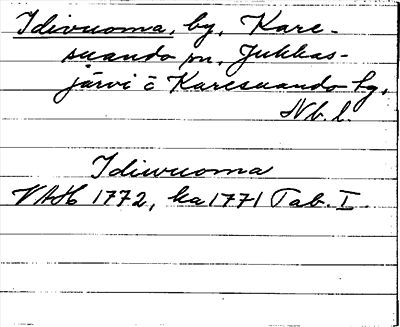 Idivuoma, by, Kare-
suando sn, Jukkas-
järvi o Karesuando tg,
Nb. l.
Idiwuoma
VAH 1772, ka 1771 Tab. I.